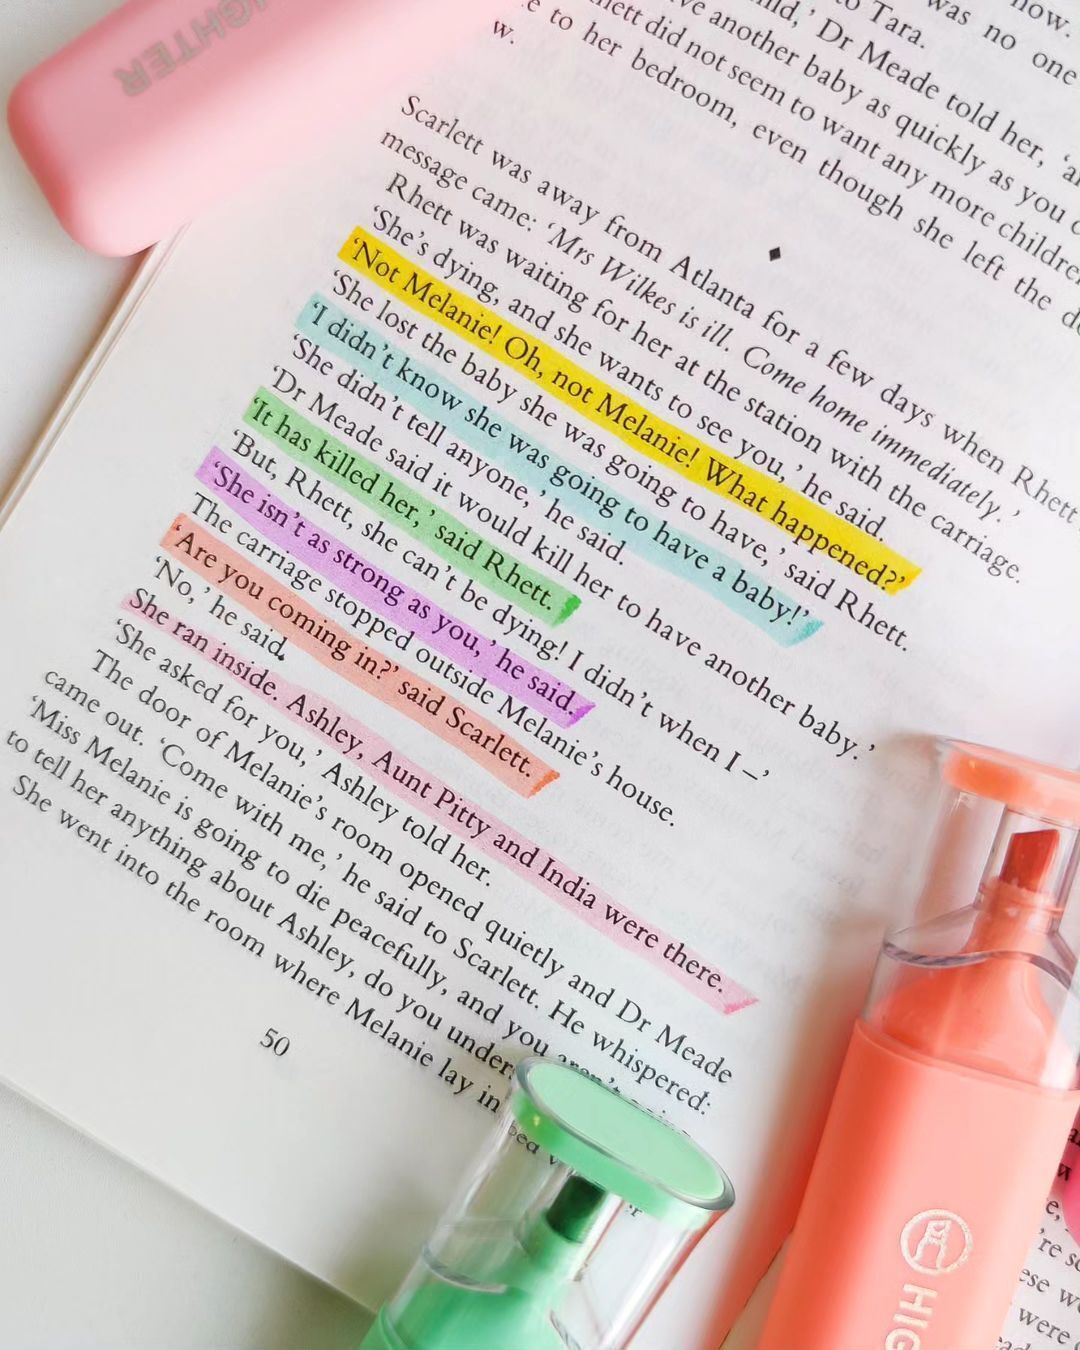 GHTER
now.
was no one
to Tara.
child,' Dr Meade told her, 'a
ve another baby as quickly as you c
nett did not seem to want any more childre
e to her bedroom, even though she left the do
w.
Scarlett was away from Atlanta for a few days when Rhett
message came: 'Mrs Wilkes is ill. Come home immediately.'
Rhett was waiting for her at the station with the carriage.
'She's dying, and she wants to see you,' he said.
'Not Melanie! Oh, not Melanie! What happened?'
'She lost the baby she was going to have,' said Rhett.
'I didn't know she was going to have a baby!'
'She didn't tell anyone,' he said.
'Dr Meade said it would kill her to have another baby.'
'It has killed her,' said Rhett.
'But, Rhett, she can't be dying! I didn't when I –'
'She isn't as strong as you,' he said.
The carriage stopped outside Melanie's house.
'Are you coming in?' said Scarlett.
'No,' he said.
She ran inside. Ashley, Aunt Pitty and India were there.
'She asked for you,' Ashley told her.
The door of Melanie's room opened quietly and Dr Meade
came out. 'Come with me,' he said to Scarlett. He whispered:
'Miss Melanie is going to die peacefully, and you aren't
to tell her anything about Ashley, do you under
She went into the room where Melanie lay in bed
50
HIG